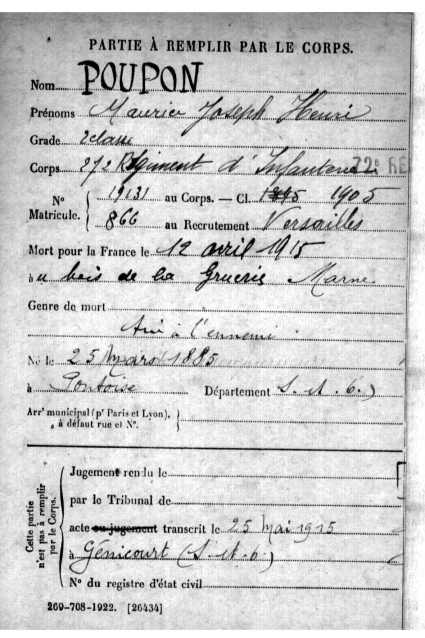 PARTIE À REMPLIR PAR LE CORPS.
Nom POUPON
Prénoms Maurice Joseph Henri
Grade 2 classe
Corps 272 Régiment d'Infanterie 72e RE
N° Matricule. { 19131 au Corps. — Cl. 1895 1905
866 au Recrutement Versailles
Mort pour la France le 12 avril 1915
à u bois de la Gruerie Marne
Genre de mort
tué à l'ennemi
Né le 25 Mars 1885
à Pontoise Département S. et O.)
Arrt municipal (pr Paris et Lyon), }
à défaut rue et N°.
Cette partie n'est pas à remplir par le Corps.
Jugement rendu le
par le Tribunal de
acte ou jugement transcrit le 25 Mai 1915
à Génicourt (S. et O.)
N° du registre d'état civil
269-708-1922. [26434]